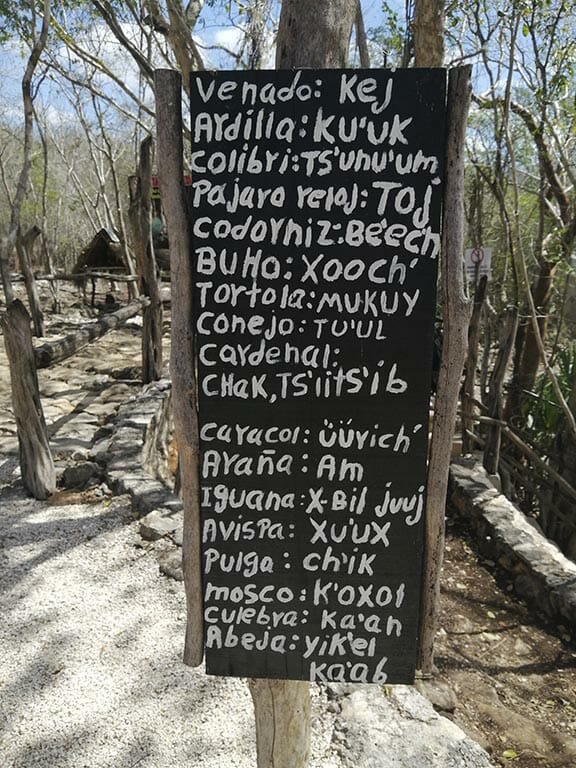 Venado: Kej
Ardilla: KU'UK
colibri: TS'unu'um
Pajaro reloj: Toj
codorniz: Be'ech
BUHO: XOOCH'
Tortola: MUKUY
conejo: TU'UL
cardenal:
CHaK, TS'iits'ib
caracol: üüրich'
Araña: Am
Iguana: X-Bil juuj
Avispa: XU'UX
Pulga: ch'ik
mosco: K'OXOl
culebra: Ka'an
Abeja: yik'el
Ka'ab